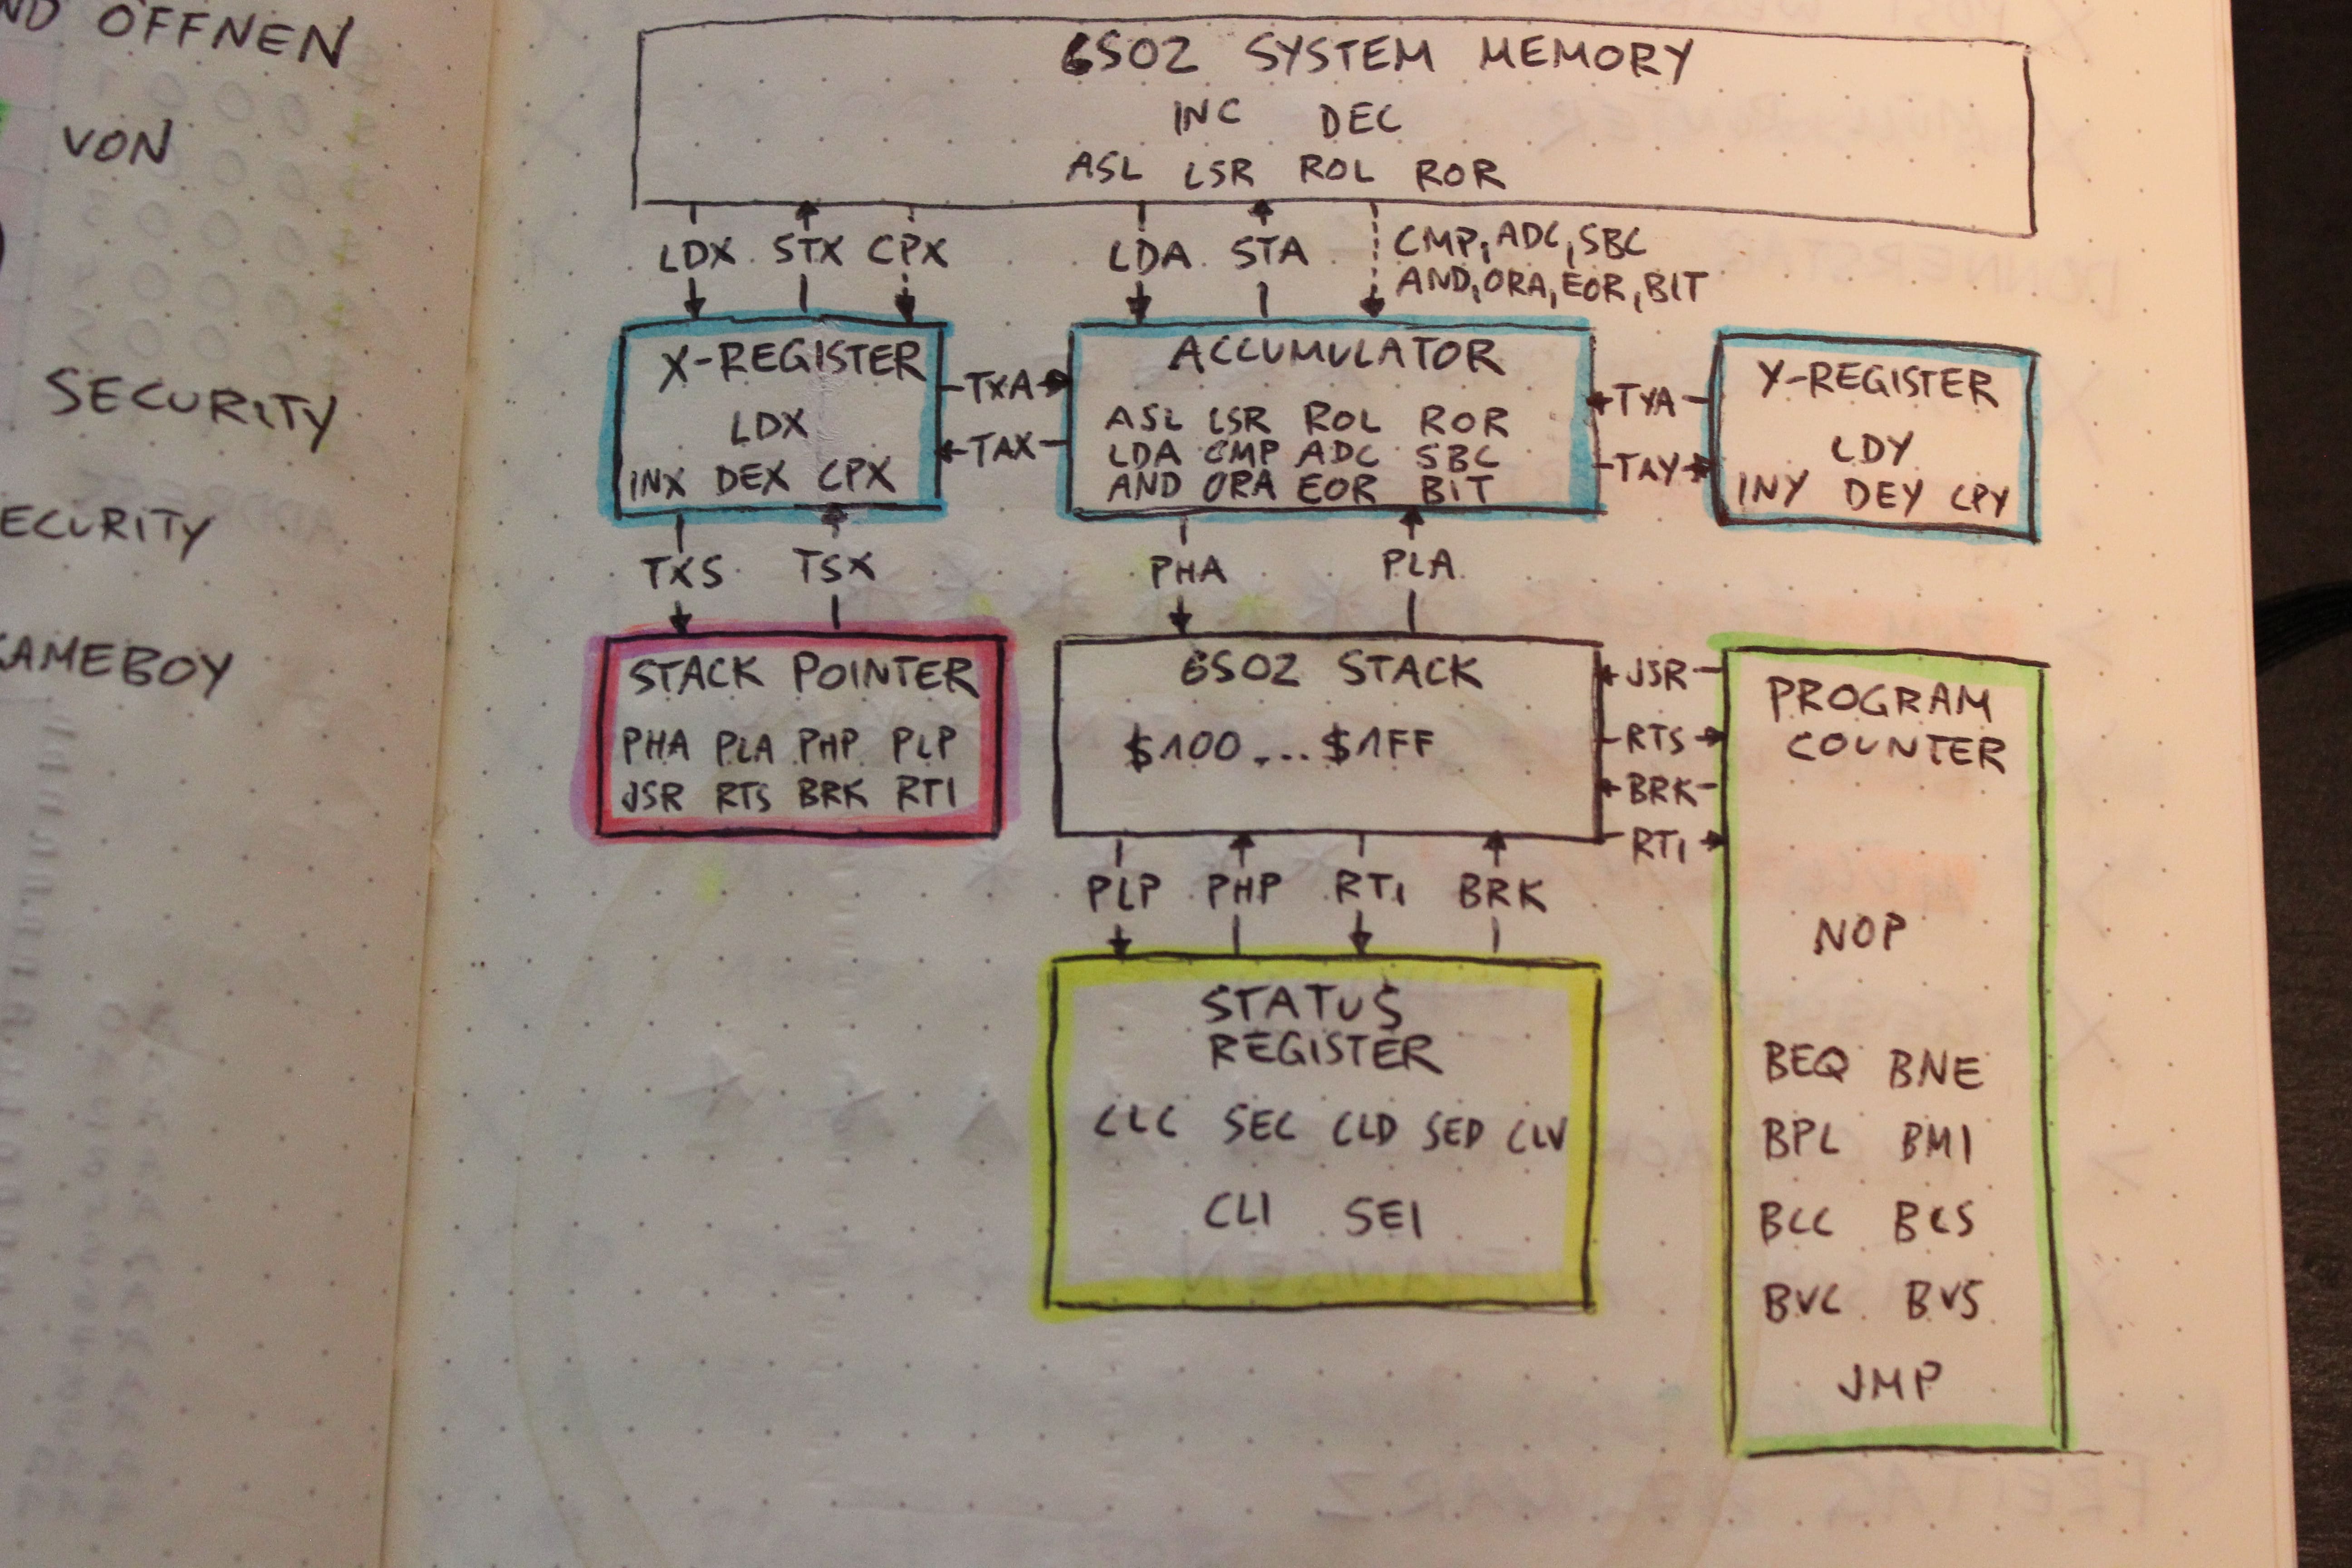 ND ÖFFNEN
VON
SECURITY
ECURITY
GAMEBOY
6502 SYSTEM MEMORY
INC DEC
ASL LSR ROL ROR
LDX STX CPX LDA STA CMP, ADC, SBC
AND, ORA, EOR, BIT
X-REGISTER
LDX
INX DEX CPX
TXA
TAX
ACCUMULATOR
ASL LSR ROL ROR
LDA CMP ADC SBC
AND ORA EOR BIT
TYA
TAY
Y-REGISTER
LDY
INY DEY CPY
TXS TSX PHA PLA
STACK POINTER
PHA PLA PHP PLP
JSR RTS BRK RTI
6502 STACK
$100 ... $1FF
JSR
RTS
BRK
RTI
PLP PHP RTI BRK
STATUS
REGISTER
CLC SEC CLD SED CLV
CLI SEI
PROGRAM
COUNTER
NOP
BEQ BNE
BPL BMI
BCC BCS
BVC BVS
JMP